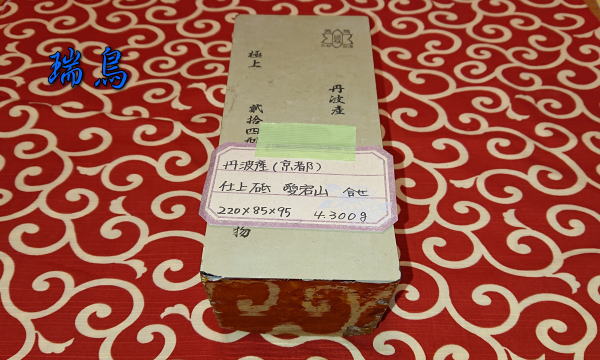 瑞鳥
極上
丹波産
貳拾四型
丹波産(京都)
仕上砥 愛宕山 合せ
220×85×95 4.300g
物